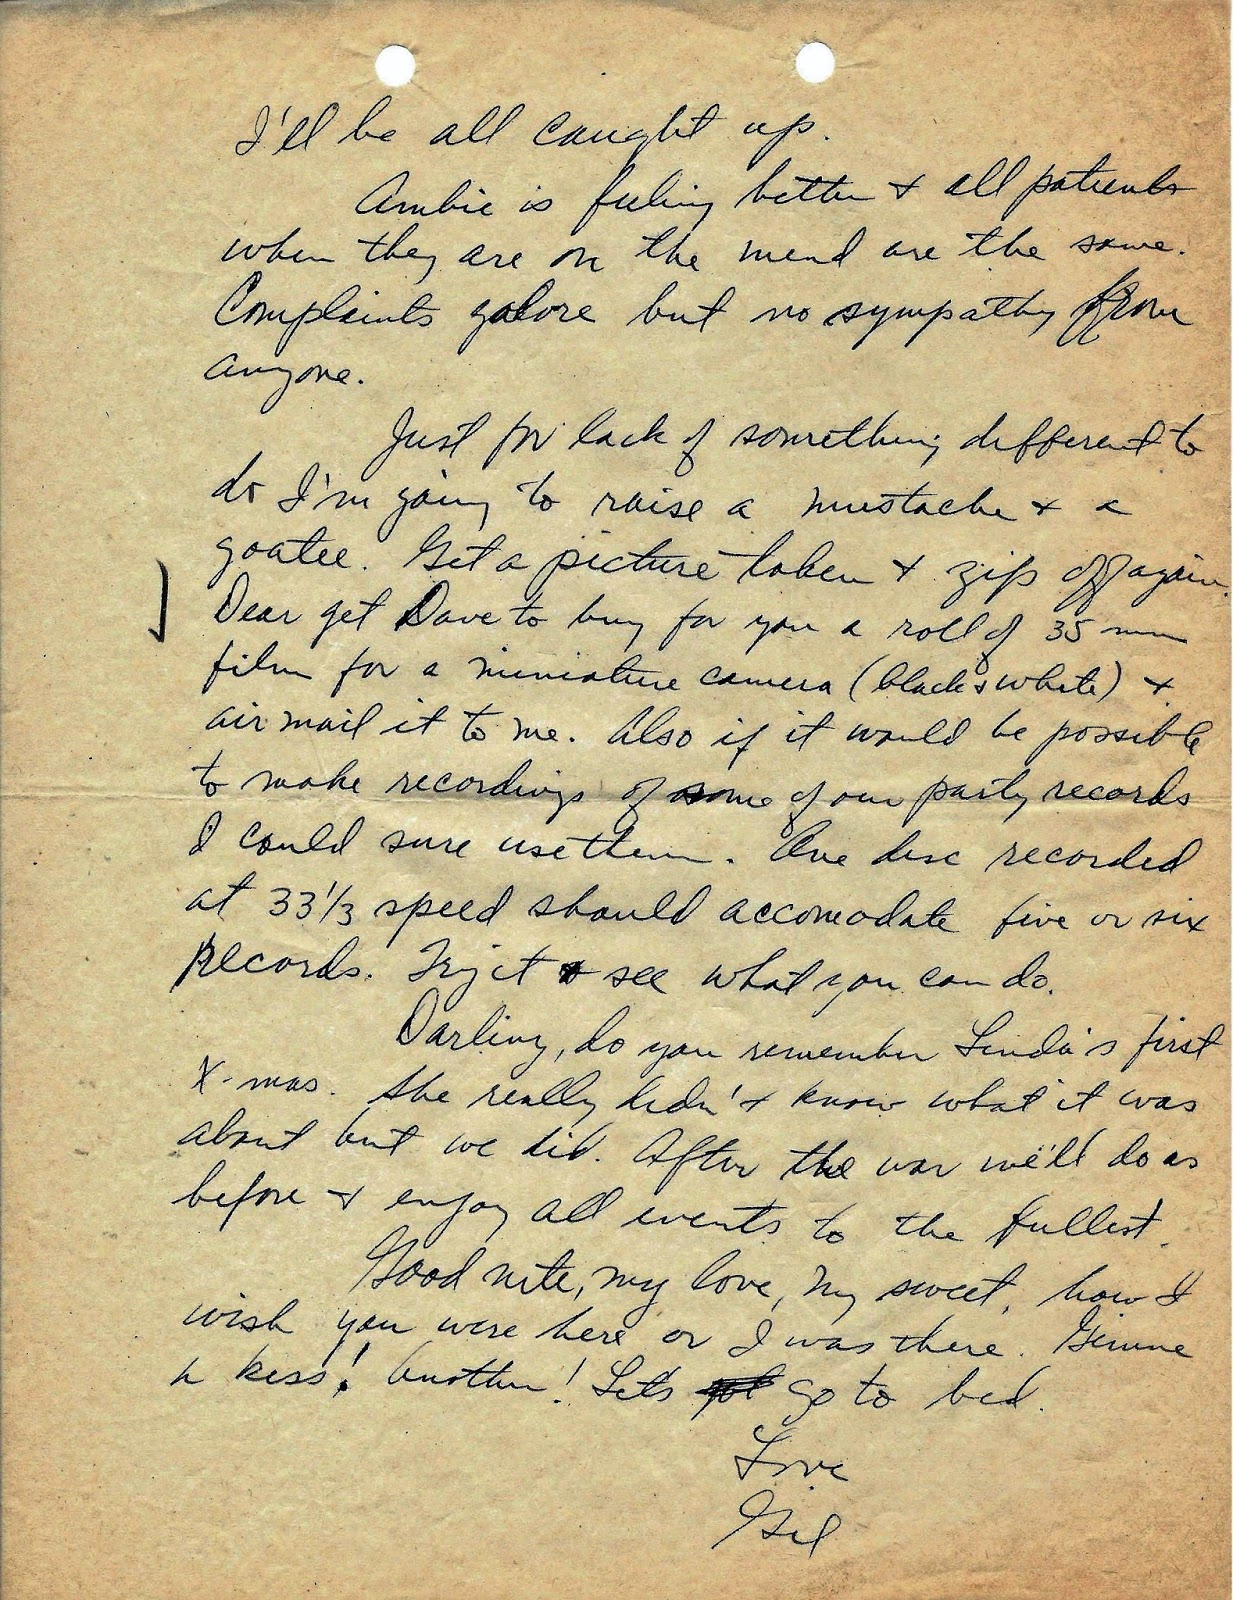 I'll be all caught up.
Ambie is feeling better + all patients
when they are on the mend are the same.
Complaints galore but no sympathy from
anyone.
Just for lack of something different to
do I'm going to raise a mustache + a
goatee. Get a picture taken + zip off again.
Dear get Dave to buy for you a roll of 35 mm
film for a miniature camera (black & white) +
air mail it to me. Also if it would be possible
to make recordings of some of our party records
I could sure use them. One disc recorded
at 33 1/3 speed should accomodate five or six
records. Try it & see what you can do.
Darling, do you remember Linda's first
X-mas. She really didn't know what it was
about but we did. After the war we'll do as
before + enjoy all events to the fullest.
Good nite, my love, my sweet, how I
wish you were here or I was there. Gimme
a kiss! Another! Lets go to bed.
Love
Gil